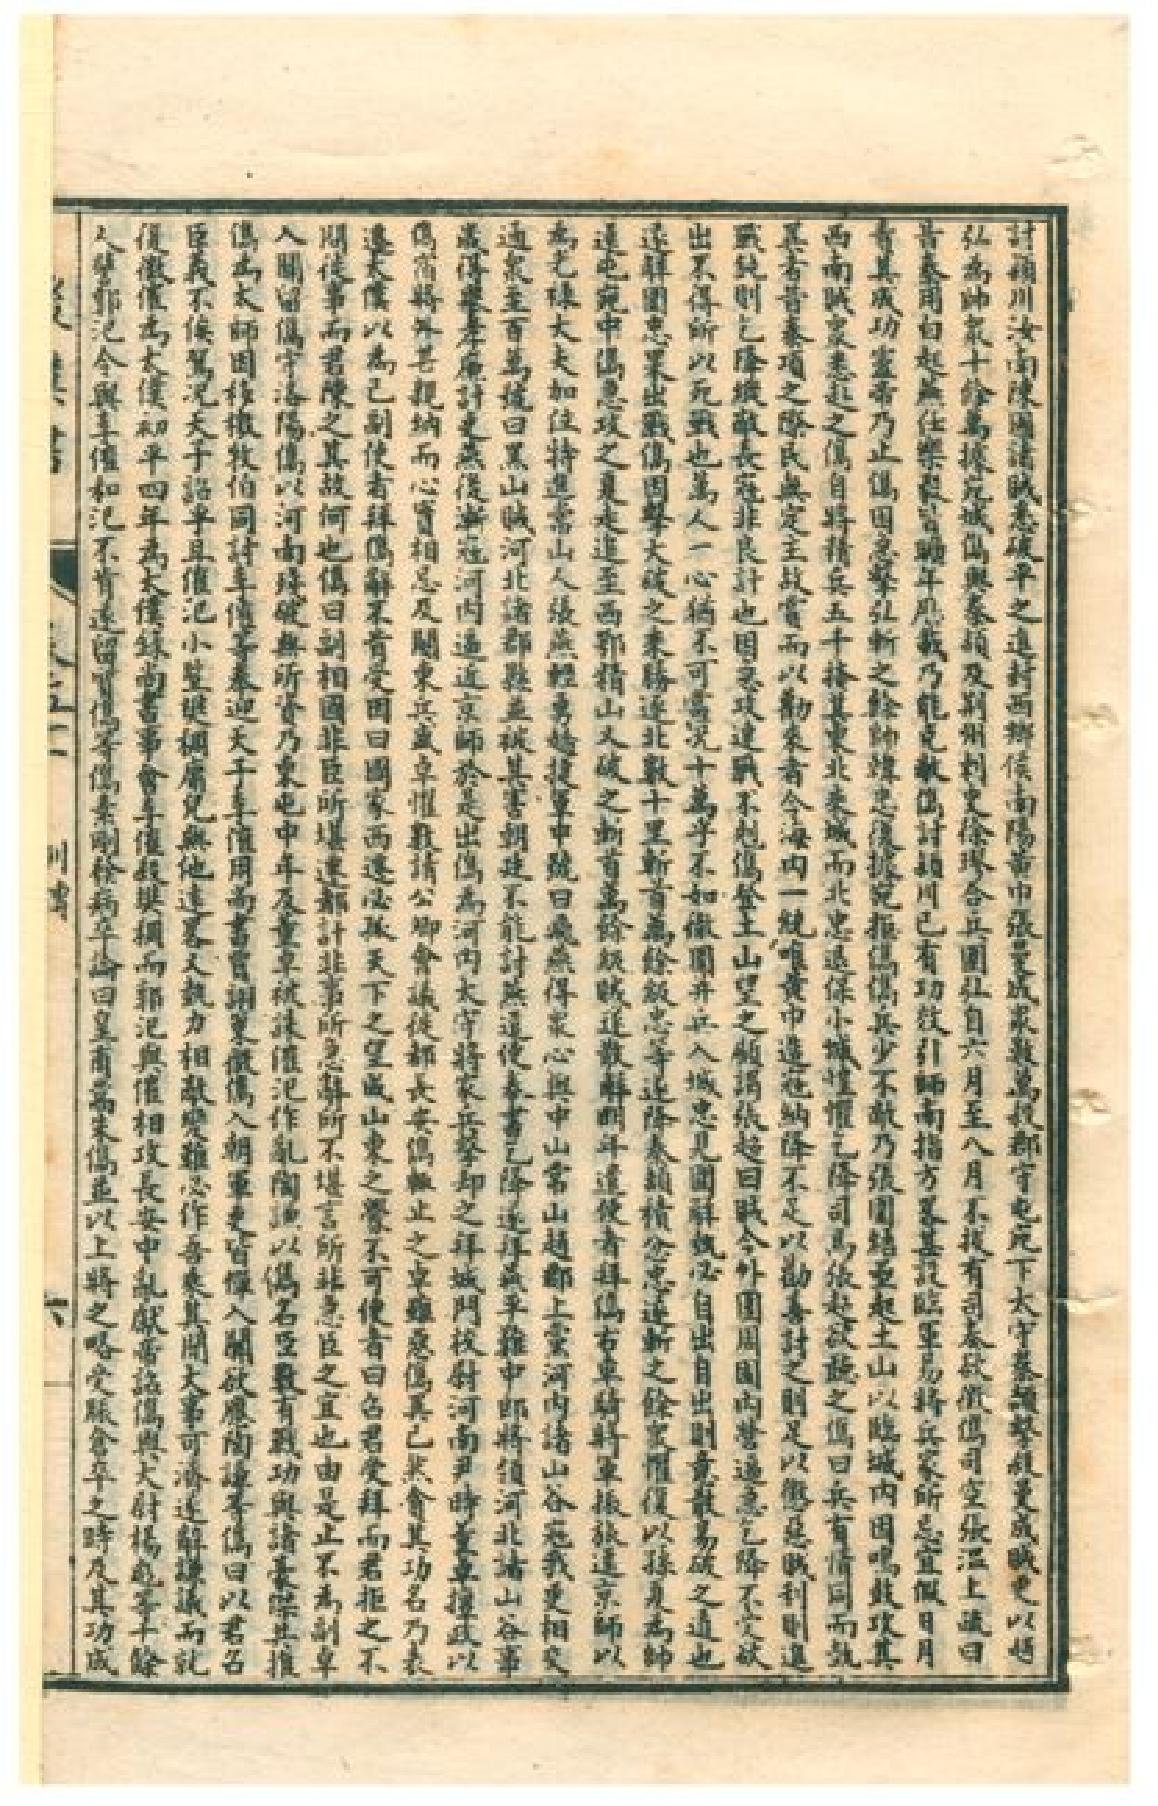 討潁川汝南陳國諸賊悉破平之進封西鄉侯南陽黃巾張曼成眾數萬殺郡守屯宛下太守秦頡擊殺曼成賊更以趙
弘為帥眾十餘萬據宛城儁與秦頡及荊州刺史徐璆合兵圍弘自六月至八月不拔有司奏欲徵儁司空張溫上疏曰
昔秦用白起燕任樂毅皆曠年歷載乃能克敵儁討潁川已有功效引師南指方略甚設臨軍易將兵家所忌宜假日月
責其成功靈帝乃止儁因急擊弘斬之餘帥韓忠復據宛拒儁儁兵少不敵乃張圍結壘起土山以臨城內因鳴鼓攻其
西南賊眾悉赴之儁自將精兵五千掩其東北乘城而北忠退保小城惶懼乞降司馬張超欲聽之儁曰兵有情同而埶
異者昔秦項之際民無定主故賞而以勸來者今海內一統唯黃巾造寇納降不足以勸善討之則足以懲惡賊利則進
戰鈍則乞降縱敵長寇非良計也因急攻連戰不剋儁登土山望之顧謂張超曰賊今外圍周固內營逼急乞降不受欲
出不得所以死戰也萬人一心猶不可當況十萬乎不如徹圍并兵入城忠見圍解埶必自出自出則意散易破之道也
遂解圍忠果出戰儁因擊大破之乘勝逐北數十里斬首萬餘級忠等遂降秦頡積忿忠遂斬之餘眾懼復以孫夏為帥
還屯宛中儁急攻之夏走追至西鄂精山又破之斬首萬餘級賊遂散解明年遣使者拜儁右車騎將軍振旅還京師以
為光祿大夫加位特進常山人張燕輕勇趫捷軍中號曰飛燕得眾心與中山常山趙郡上黨河內諸山谷寇賊更相交
通眾至百萬號曰黑山賊河北諸郡縣並被其害朝廷不能討燕遣使奏書乞降遂拜燕平難中郎將領河北諸山谷事
歲得舉孝廉計吏燕後漸寇河內逼近京師於是出儁為河內太守將家兵擊卻之拜城門校尉河南尹時董卓擅政以
儁宿將外甚親納而心實相忌及關東兵盛卓懼數請公卿會議徙都長安儁輒止之卓雖惡儁異己然貪其功名乃表
遷太僕以為己副使者拜儁辭不肯受因曰國家西遷必孤天下之望成山東之釁不可使者曰召君受拜而君拒之不
問徙事而君陳之其故何也儁曰副相國非臣所堪遷都計非事所急辭所不堪言所非急臣之宜也由是止不為副卓
入關留儁守洛陽儁以河南殘破無所資乃東屯中牟及董卓被誅傕汜作亂陶謙以儁名臣數有戰功與諸豪傑共推
儁為太師因移檄牧伯同討李傕等奉迎天子李傕用尚書賈詡策徵儁入朝軍吏皆憚入關欲應陶謙等儁曰以君召
臣義不俟駕況天子詔乎且傕汜小豎樊稠庸兒無他遠略又埶力相敵變難必作吾乘其間大事可濟遂辭謙議而就
復徵傕為太僕初平四年為太僕錄尚書事會李傕殺樊稠而郭汜與傕相攻長安中亂獻帝詔儁與大尉楊彪等十餘
人譬郭汜令與李傕和汜不肯遂留質儁等儁素剛發病卒論曰皇甫嵩朱儁並以上將之略受脤倉卒之時及其功成
後漢書
六